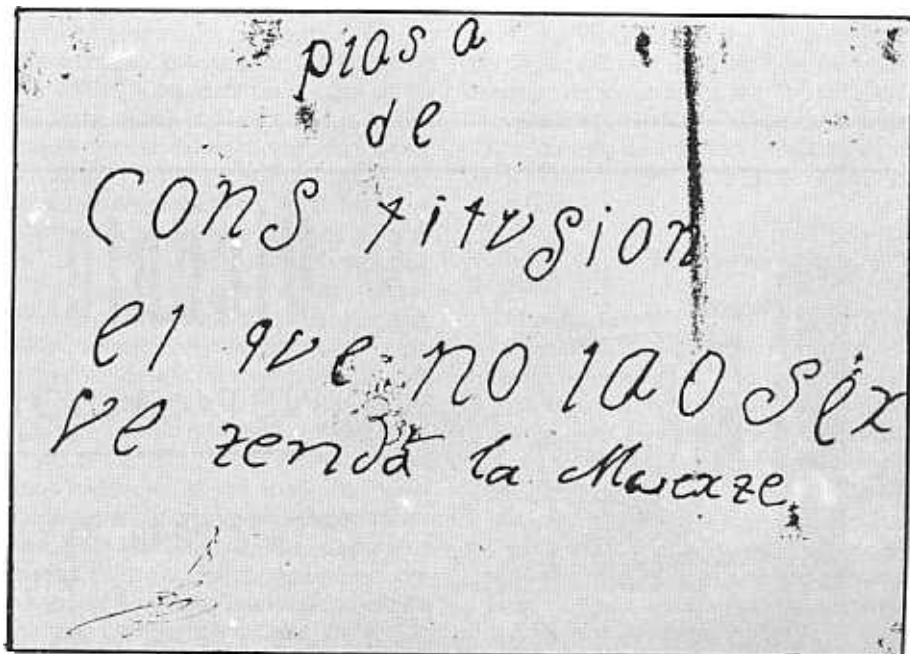 plasa
de
Cons titusion
el que no lao sex
ve zendá la Muexze